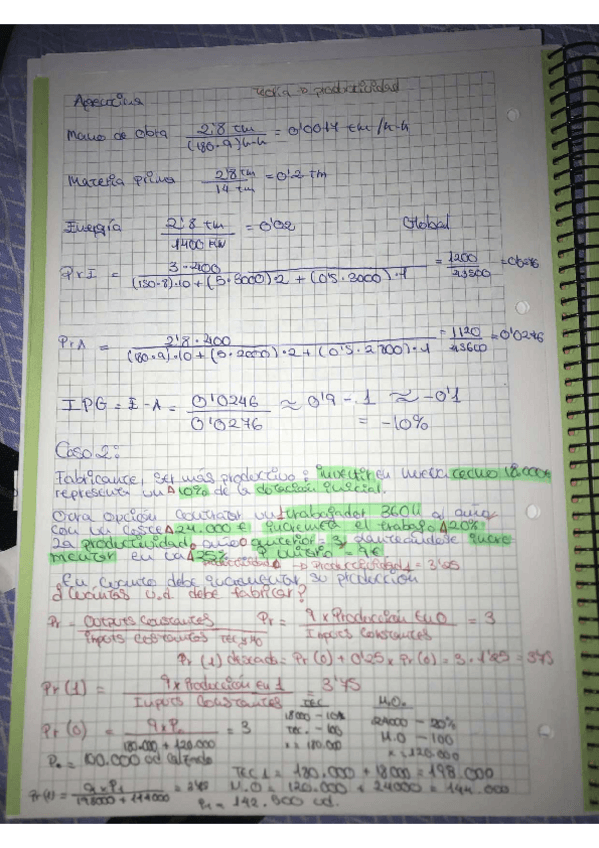 teoría productividad
Agencia
Mano de Obra 2'8 tm / (180·9)h-h = 0'0017 tm/h-h
Materia prima 2'8 tm / 14 tm = 0'2 tm
Energía 2'8 tm / 1400 KW = 0'02 Global
Pr I = 3·400 / (180·8)·10 + (5·3000)·2 + (0'5·3000)·1 = 1200 / 43500 = 0'0276
Pr A = 2'8·400 / (180·9)·10 + (5·2000)·2 + (0'5·2700)·1 = 1120 / 43600 = 0'0246
IPG = I - A = 0'0246 / 0'0276 ≈ 0'9 - 1 ≈ -0'1
= -10%
Caso 2:
Fabricante, ser más productivo: invertir en nueva tecno 18.000€
representa un Δ 10% de la dotación inicial.
Otra opción contratar un trabajador 360h al año
con un coste Δ 24.000€ incrementa el trabajo Δ 20%.
La productividad año anterior = 3, planteándose incre
mentar en un Δ 25% P unitario = 9€
productividad → Productividad 1 = 3'75
En cuánto debe incrementar su producción
¿Cuántas u.d debe fabricar?
Pr = Outputs Constantes / Inputs Constantes Pr = 9 x Producción en 0 / Inputs Constantes = 3
TEC y MO
Pr (1) deseado = Pr(0) + 0'25 x Pr(0) = 3·1'25 = 3'75
Pr(1) = 9 x Producción en 1 / Inputs Constantes = 3'75
TEC M.O.
Pr(0) = 9 x P₀ / 180.000 + 120.000 = 3
18000 - 10% 24000 - 20%
TEC. - 100 M.O - 100
x = 180.000 x = 120.000
P₀ = 100.000 ud calzado
TEC 1 = 180.000 + 18000 = 198.000
Pr(1) = 9 x P₁ / 198000 + 144000 = 3'75 M.O = 120.000 + 24000 = 144.000
P₁ = 142.500 ud.